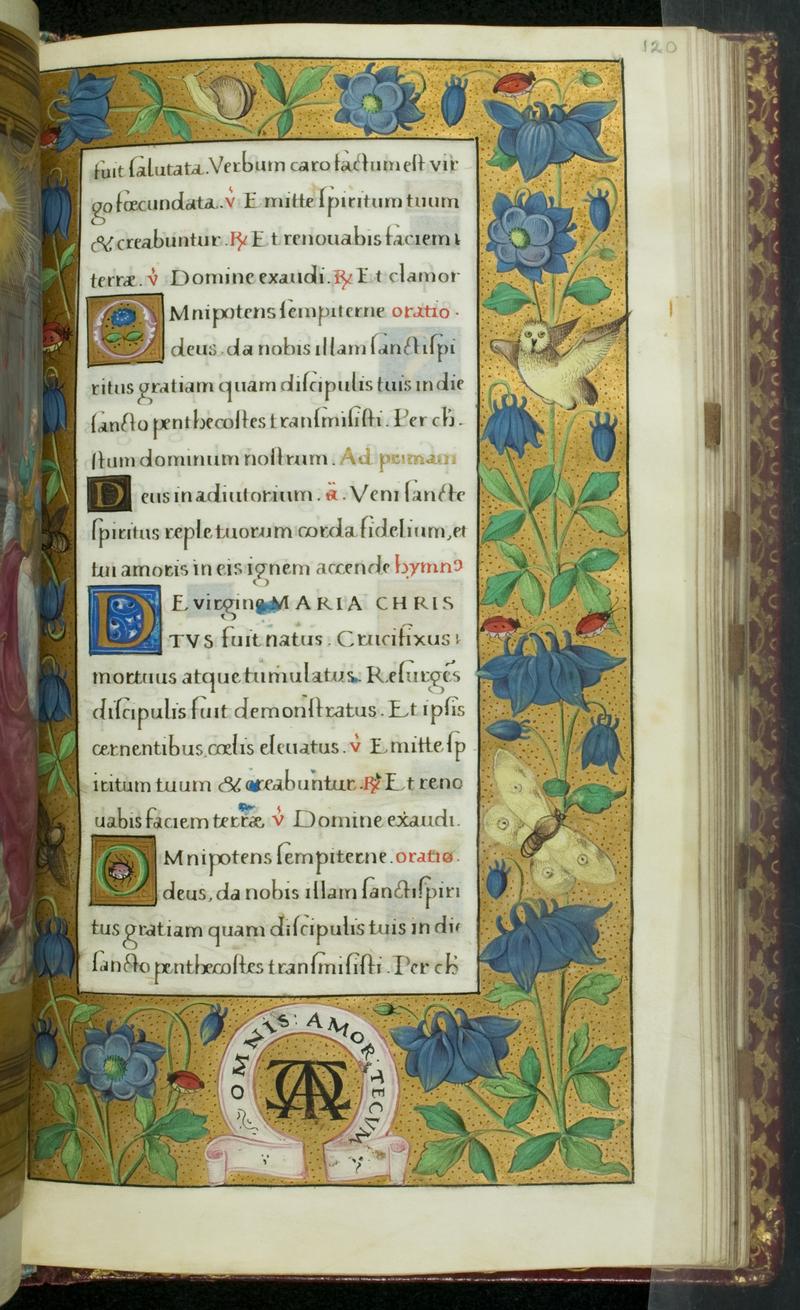 120
fuit ſalutata. Verbum caro factum eſt vir
go fœcundata. v̇ E mitte ſpiritum tuum
& creabuntur. ℟ E t renouabis faciem
terræ. v̇ Domine exaudi. ℟ E t clamor
O Mnipotens ſempiterne oratio.
deus. da nobis illam ſancti ſpi
ritus gratiam quam diſcipulis tuis in die
ſancto penthecoſtes tranſmiſiſti. Per ch̄.
ſtum dominum noſtrum. Ad primam
D eus in adiutorium. ā. Veni ſancte
ſpiritus reple tuorum corda fidelium, et
tui amoris in eis ignem accende hymnꝰ
D E virgine MARIA CHRIS
TVS fuit natus. Crucifixus
mortuus atque tumulatus. Reſurgēs
diſcipulis fuit demonſtratus. Et ipſis
cernentibus cœlis eleuatus. v̇ E mitte ſp
iritum tuum & creabuntur. ℟ E t reno
uabis faciem terræ. v̇ Domine exaudi.
O Mnipotens ſempiterne. oratio.
deus, da nobis illam ſancti ſpiri
tus gratiam quam diſcipulis tuis in die
ſancto penthecoſtes tranſmiſiſti. Per ch̄
OMNIS: AMOR. TECVM